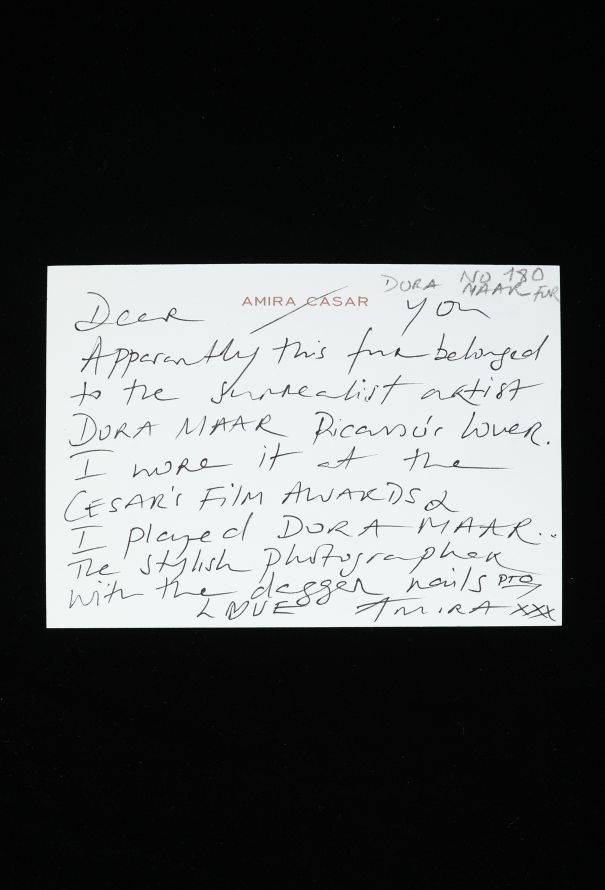 DORA NO 180
MAAR FUR
AMIRA CASAR
Dear you
Apparantly this fur belonged
to the surrealist artist
DORA MAAR Picasso's lover.
I wore it at the
CESAR'S FILM AWARDS &
I played DORA MAAR..
The stylish photographer
with the dagger nails PTO
LOVE AMIRA xxx